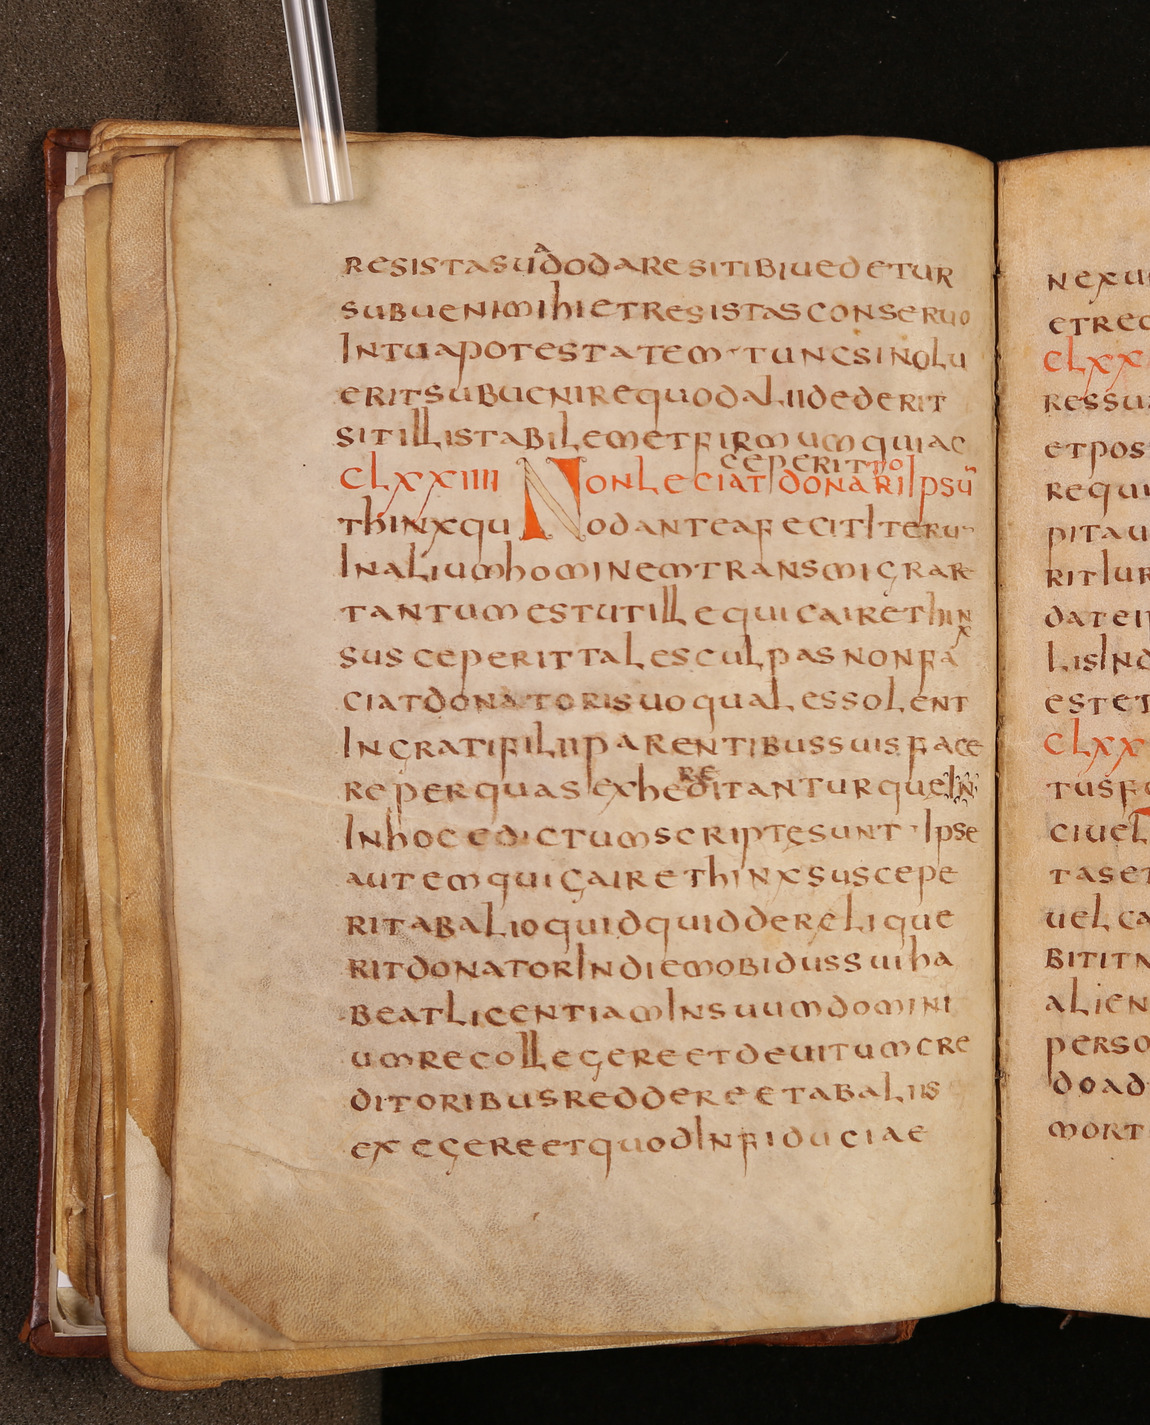 resistas uado dare si tibi uedetur
subueni mihi et resistas conseruo
In tua potestatem tunc si nolu
erit subuenire quod alii dederit
sit illi stabilem et firmum qui ac
ceperit
CLXXIIII Non leciat donatori Ipsū
thinx quod ante a fecit Iteru
In alium hominem transmigrare
tantum est ut ille qui cairethinx
susceperit tales culpas non fa
ciat donatori suo quales solent
Ingrati filii parentibus suis face
re per quas exhereditantur que In
In hoc edictum scripte sunt Ipse
autem qui cairethinx suscepe
rit ab alio quidquid derelique
rit donator In die mobidus sui ha
beat licentiam In suum domini
um recollegere et deuitum cre
ditoribus reddere et ab aliis
exegere et quod In fiduciae
nexu
etrec
CLXX
ressua
etpos
requi
pitau
rit Iur
datein
lis Ind
estet
CLXX
tusf
ciuel
taset
uel ca
bititn
alien
perso
doad
mort